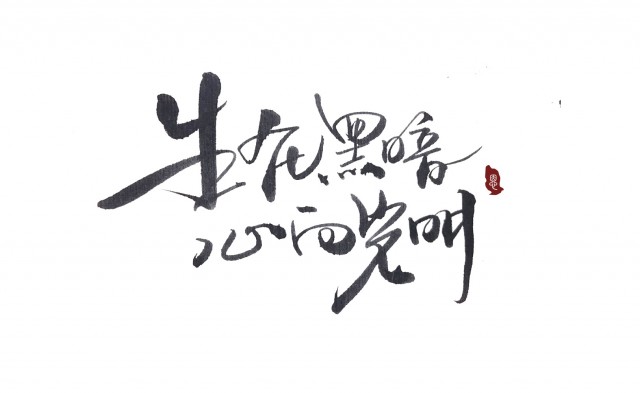 生在黑暗
心向光明